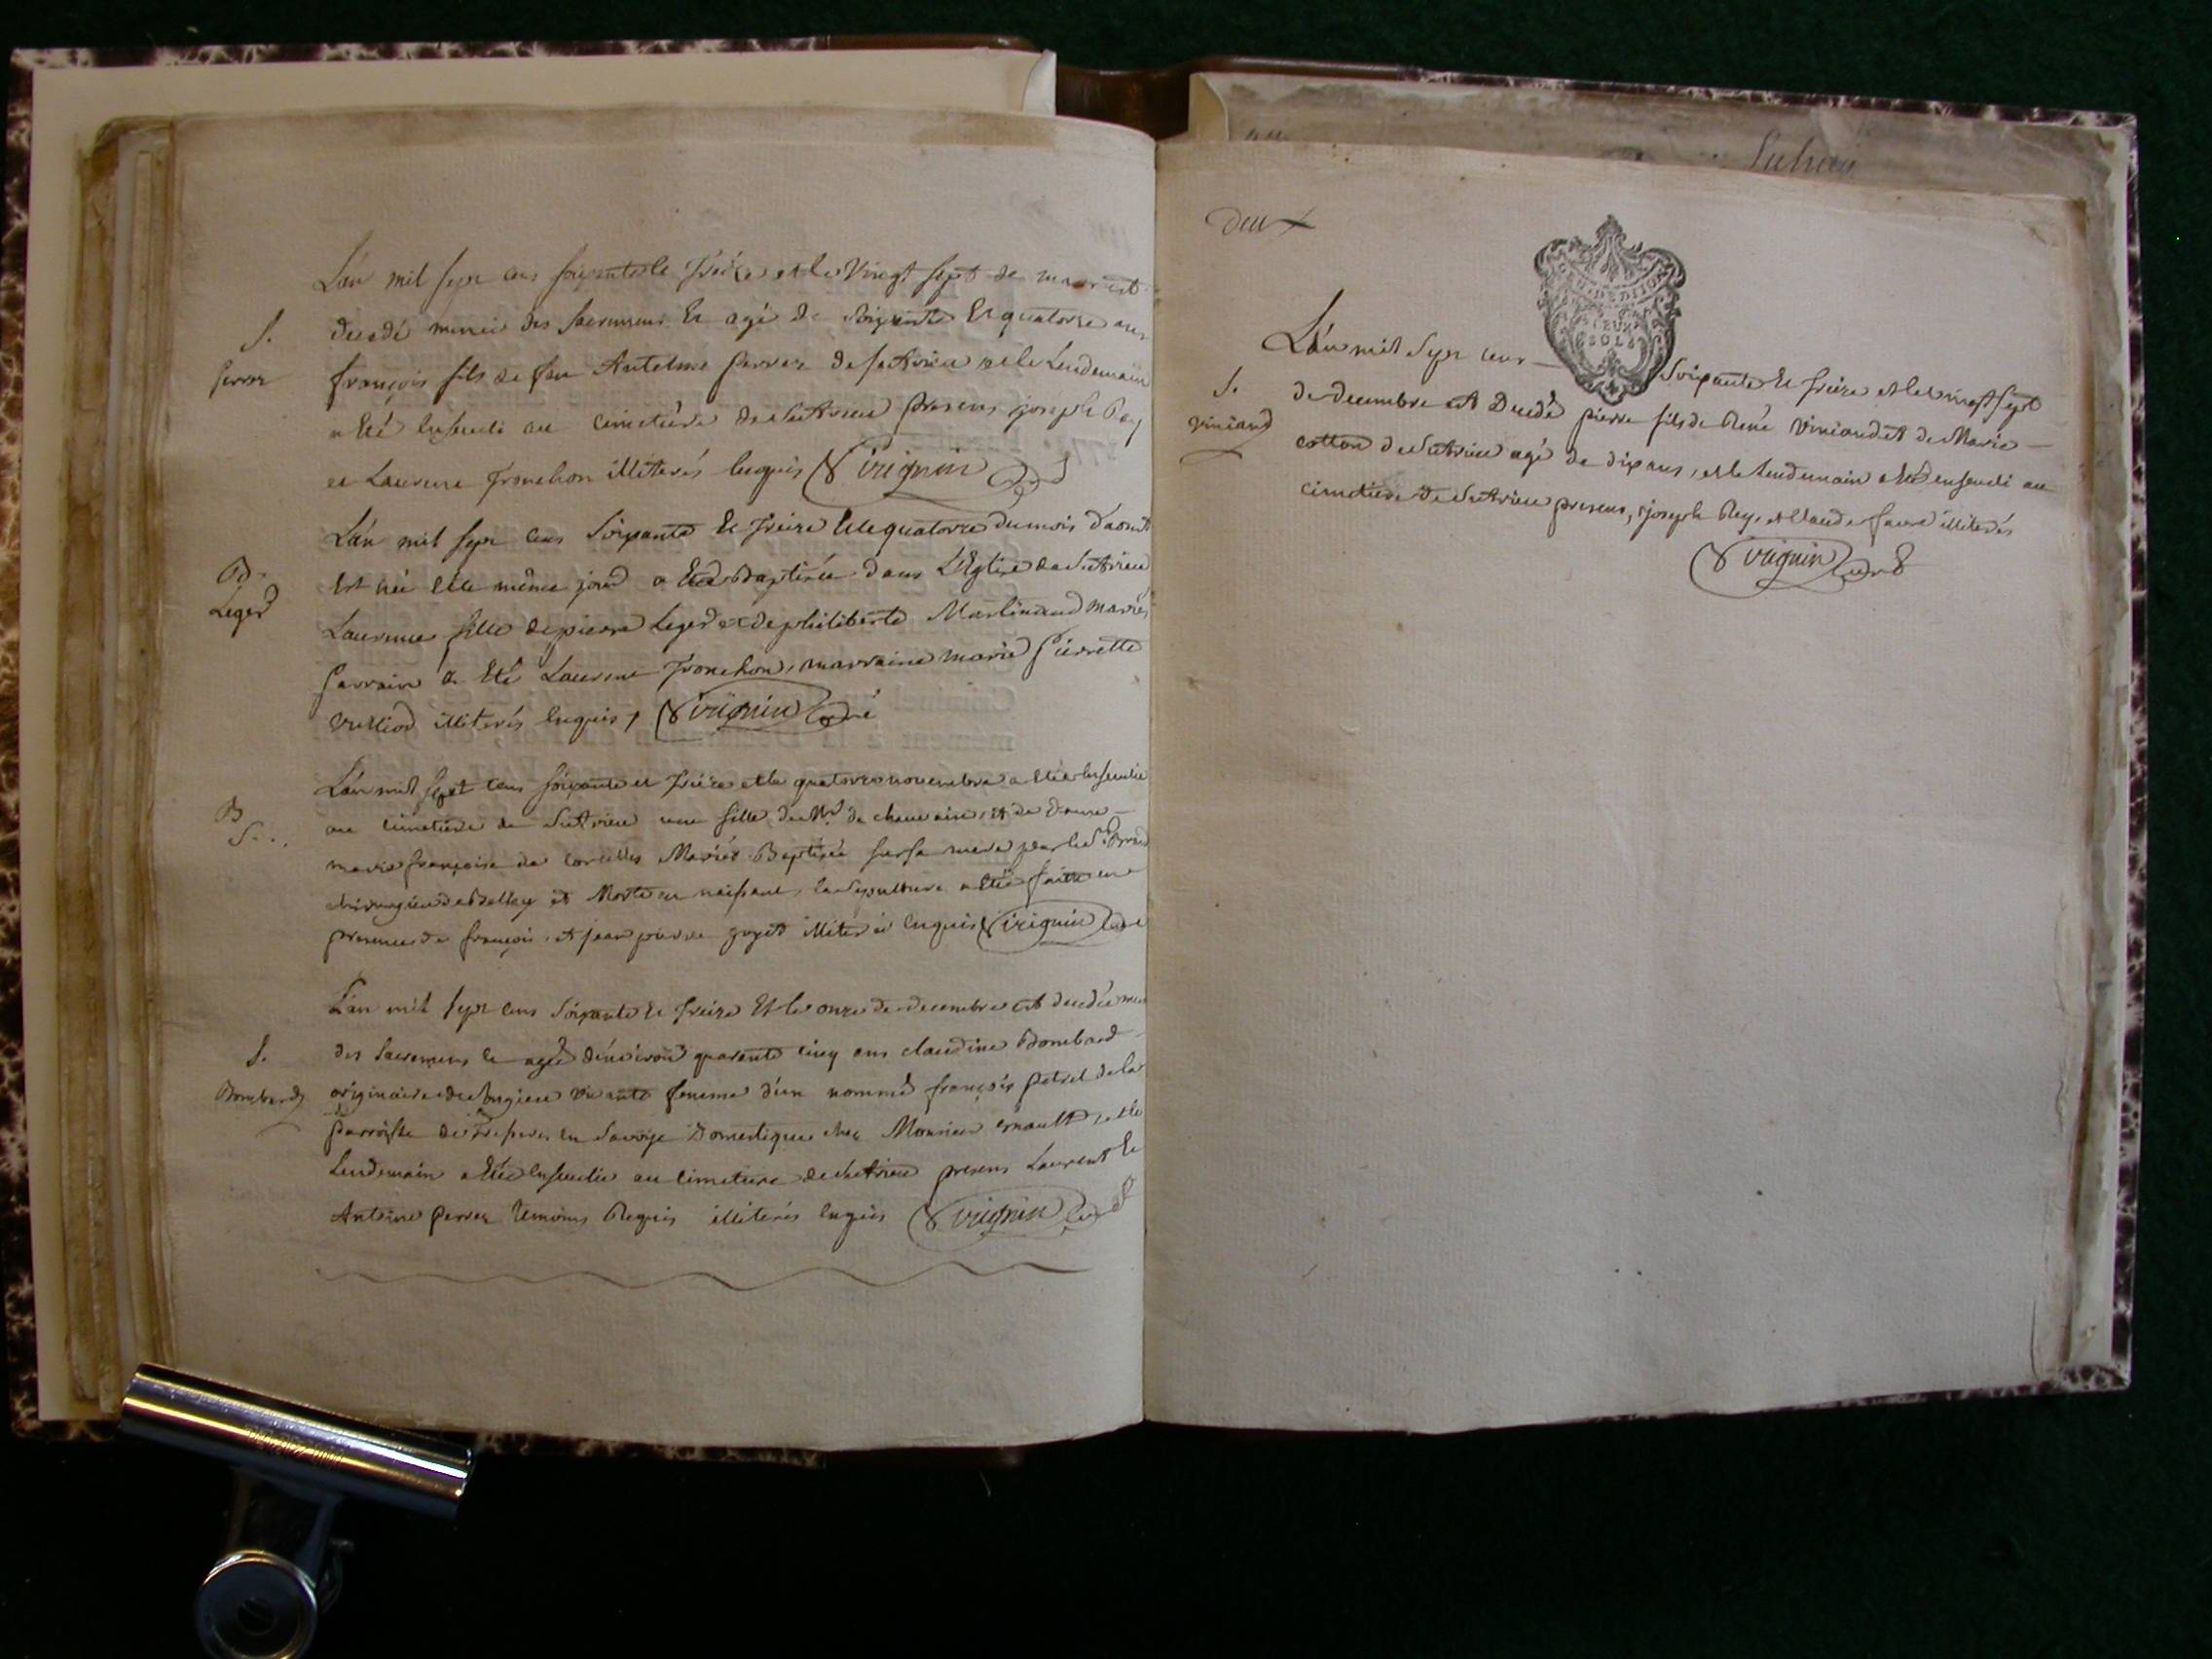 L'an mil sept cens soixante et treize et le vingt sept de mars est
S.
Perret
decedé muni des sacremens et agé de soixante et quatorze ans
françois fils de feu Antelme perret de sutrieu et le lendemain
a eté enseveli au cimetière de sutrieu presens joseph Rey
et Laurent Tronchon illiterés enquis Virignin curé
L'an mil sept cens soixante et treize et le quatorze du mois d'aoust
B.
Leger
est née et le même jour a eté baptisée dans L'Eglise de sutrieu
Laurence fille de pierre Leger et de philiberte Martinand mariés
parrain a eté Laurent Tronchon, marraine marie pierrette
vulliod illiterés enquis, Virignin curé
L'an mil sept cens soixante et treize et le quatorze novembre a eté ensevelie
B
S..
au cimetière de sutrieu une fille de Mr de et de dame
marie françoise de corcelles mariés Baptisée par le Sr
chirurgien de Belley et morte en naissant, la sepulture a eté faite en
presence de françois, et jean pierre goget illiterés enquis Virignin curé
L'an mil sept cens soixante et treize et le onze de decembre est decedée munie
S.
Bombard
des sacremens et agée d'environ quarante cinq ans claudine Bombard
originaire de vivante femme d'un nommé françois petret de la
parroisse de en Savoye domestique chez Monsieur et le
lendemain a eté ensevelie au cimetiere de sutrieu presens Laurent et
Antoine perret temoins requis illiterés enquis Virignin curé
deux
GEN. DE DIJON
DEUX
SOLS
L'an mil sept cens soixante et treize et le vingt sept
S.
viniand
de decembre est decedé pierre fils de René viniand et de Marie
cotton de sutrieu agé de dix ans, et le lendemain a eté enseveli au
cimetière de sutrieu presens, joseph Rey, et claude favre illiterés
Virignin curé